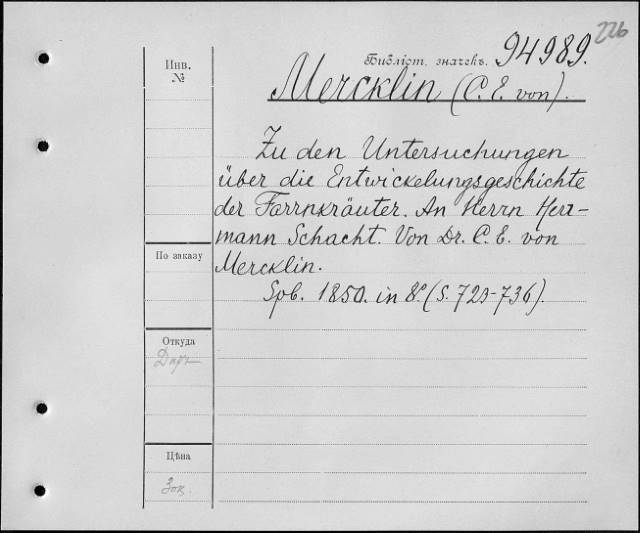 226
Библіот. значекъ. 94989.
Инв.
№
Mercklin (C. E. von).
Zu den Untersuchungen
über die Entwickelungsgeschichte
der Farrnkräuter. An Herrn Herr-
mann Schacht. Von Dr. C. E. von
Mercklin.
Spb. 1850. in 8º (S. 723-736).
По заказу
Откуда
Даръ
Цѣна